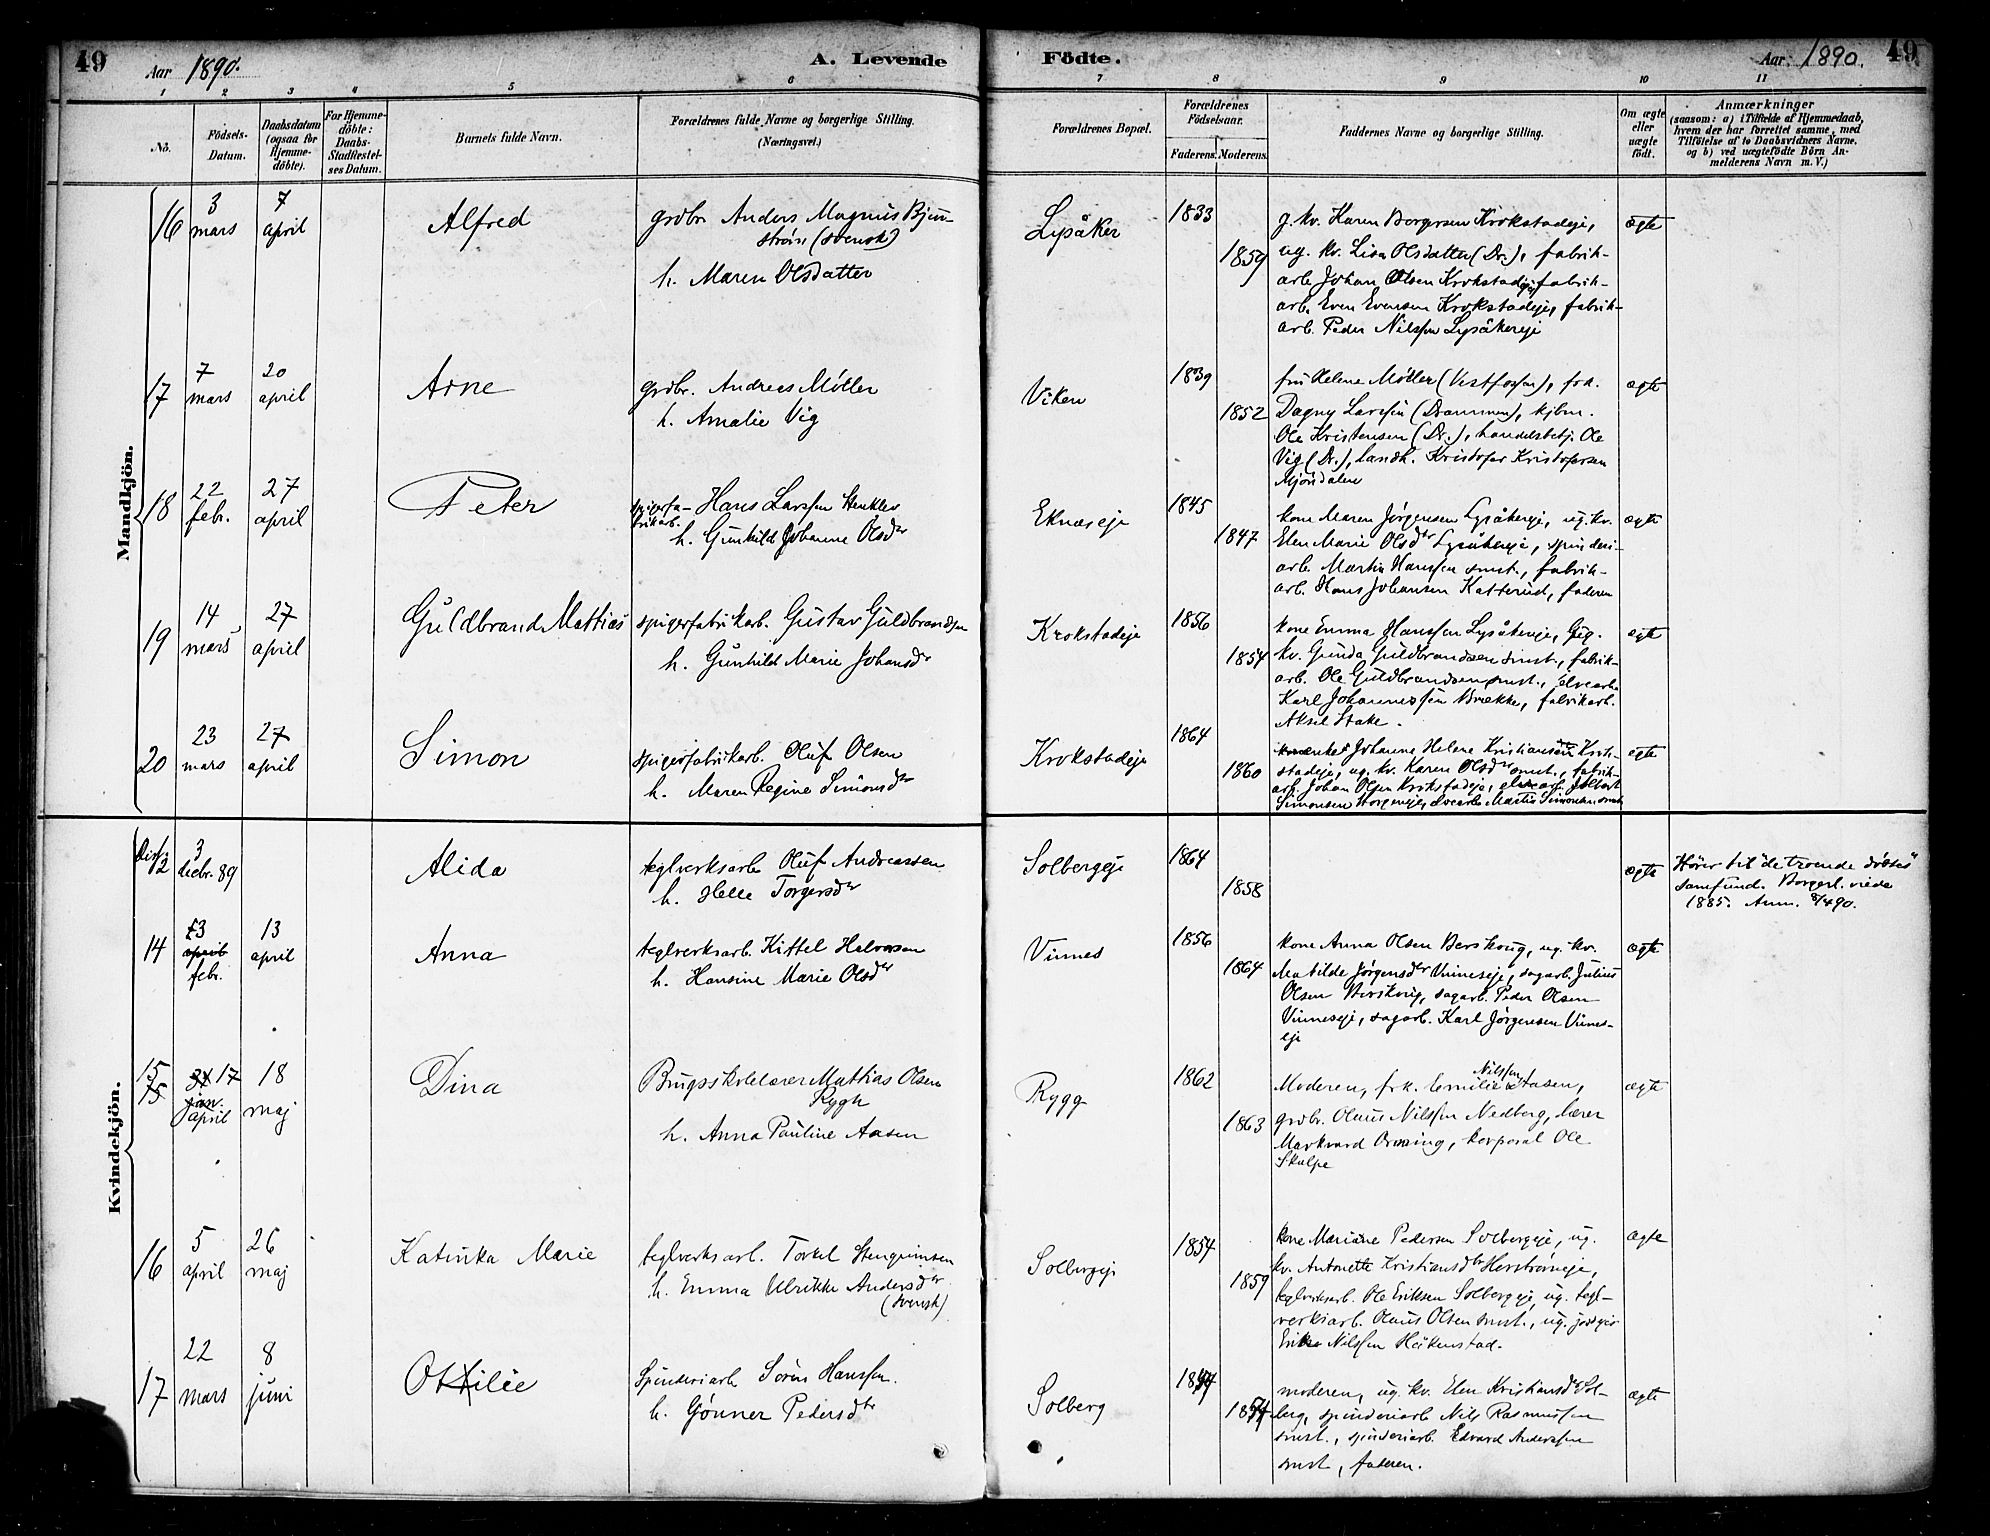 49 Aar 1890. A. Levende Födte. Aar 1890. 49
1 2 3 4 5 6 7 8 9 10 11
No.
Födsels-
Datum.
Daabsdatum
(ogsaa for
Hjemme-
döbte).
For Hjemme-
döbte:
Daabs-
Stadfæstel-
ses Datum.
Barnets fulde Navn.
Forældrenes fulde Navne og borgerlige Stilling.
(Næringsvei.)
Forældrenes Bopæl.
Forældrenes
Födselsaar.
Faderens. Moderens.
Faddernes Navne og borgerlige Stilling.
Om ægte
eller
uægte
født.
Anmærkninger
(saasom: a) i Tilfælde af Hjemmedaab,
hvem der har forrettet samme, med
Tilføielse af to Daabsvidners Navne.
og b) ved uægtefödte Börn An-
melderens Navn m. V.)
Mandkjön.
16
3
mars
7
april
Alfred
grdbr. Anders Magnus Bjur-
ström (svensk)
h. Maren Olsdatter
Lysåker
1833
1859
g. kv. Karen Borgersen Krokstadeje,
ug. kv. Lisa Olsdatter (Dr.), fabrik-
arb. Johan Olsen Krokstadeje, fabrik-
arb. Even Evensen Krokstadeje, fabrik-
arb. Peder Nilssen Lysåkereje
ægte
17
7
mars
20
april
Arne
grdbr. Andreas Møller
h. Amalie Vig
Viken
1839
1852
fru Helene Møller (Vestfossen), frk.
Dagny Larssen (Drammen), kjbm.
Ole Kristensen (Dr.), handelsbetj. Ole
Vig (Dr.), landh. Kristofer Kristofersen
Mjöndalen
ægte
18
22
febr.
27
april
Peter
spigerfa- Hans Larssen Stenklev
brikarb.
h. Gunhild Johanne Olsdtr
Eknæseje
1845
1847
kone Maren Jørgensen Lysåkereje, ug. kv.
Elen Marie Olsdtr Lysåkereje, spinderi-
arb. Martin Hanssen smst., fabrik-
arb. Hans Johansen Katterud, faderen
ægte
19
14
mars
27
april
Guldbrand Mattias
spigerfabrikarb. Gustav Guldbrandsen
h. Gunhild Marie Johansdr
Krokstadeje
1856
1854
kone Emma Hanssen Lysåkereje, ug.
kv. Gunda Guldbrandsen smst., fabrik-
arb. Ole Guldbrandsen smst., elvearb.
Karl Johannessen Brække, fabrikarb.
Aksel Stake.
ægte
20
23
mars
27
april
Simon
spigerfabrikarb. Oluf Olsen
h. Maren Regine Simonsdtr
Krokstadeje
1864
1860
enke Johanne Helene Kristiansen Krok-
stadeje, ug. kv. Karen Olsdtr smst., fabrik-
arb. Johan Olsen Krokstadeje, elvearb.
Simonsen Horgeneje, elvearb. Martin Simonsen smst.
ægte
Kvindekjön.
Diss. 2
3
decbr. 89
Alida
teglverksarb. Oluf Andreassen
h. Helle Torgersdtr
Solbergeje
1864
1858
ægte
Hører til "de troende döbtes"
samfund. Borgerl. viede
1885. Anm. 8/4 90.
14
23
april
febr.
13
april
Anna
teglverksarb. Kittel Halvorsen
h. Hansine Marie Olsdtr
Vinnes
1856
1864
kone Anna Olsen Berskoug, ug. kv.
Matilde Jørgensdtr Vinneseje, sagarb. Julius
Olsen Berskoug, sagarb. Peder Olsen
Vinneseje, sagarb. Karl Jørgensen Vinnes-
eje
ægte
15
15
31 17
jan.
april
18
maj
Dina
Brugsskolelærer Mathias Olsen
Rygh
h. Anna Pauline Aasen
Rygg
1862
1863
Moderen, frk. Emilie Nilssen Aasen,
grdbr. Olaus Nilssen Nedberg, lærer
Markvard Orning, korporal Ole
Skalpe
ægte
16
5
april
26
maj
Katinka Marie
teglverksarb. Torkel Stengrimsen
h. Emma Ulrikke Andersdtr
(svensk)
Solbergeje
1854
1859
kone Mariane Pedersen Solbergeje, ug.
kv. Antonette Kristiansdtr Herstrømeje,
teglverksarb. Ole Eriksen Solbergeje, ug. tegl-
verksarb. Olaus Olsen smst., ug.
Nilssen Håkenstad.
ægte
17
22
mars
8
juni
Ottilie
Spinderiarb. Sören Hanssen
h. Gönner Pedersdtr
Solberg
moderen, ug. kv. Elen Kristiansdtr Sol-
berg, spinderiarb. Nils Rasmussen
smst., spinderiarb. Edvard Anderssen
smst, faderen.
ægte